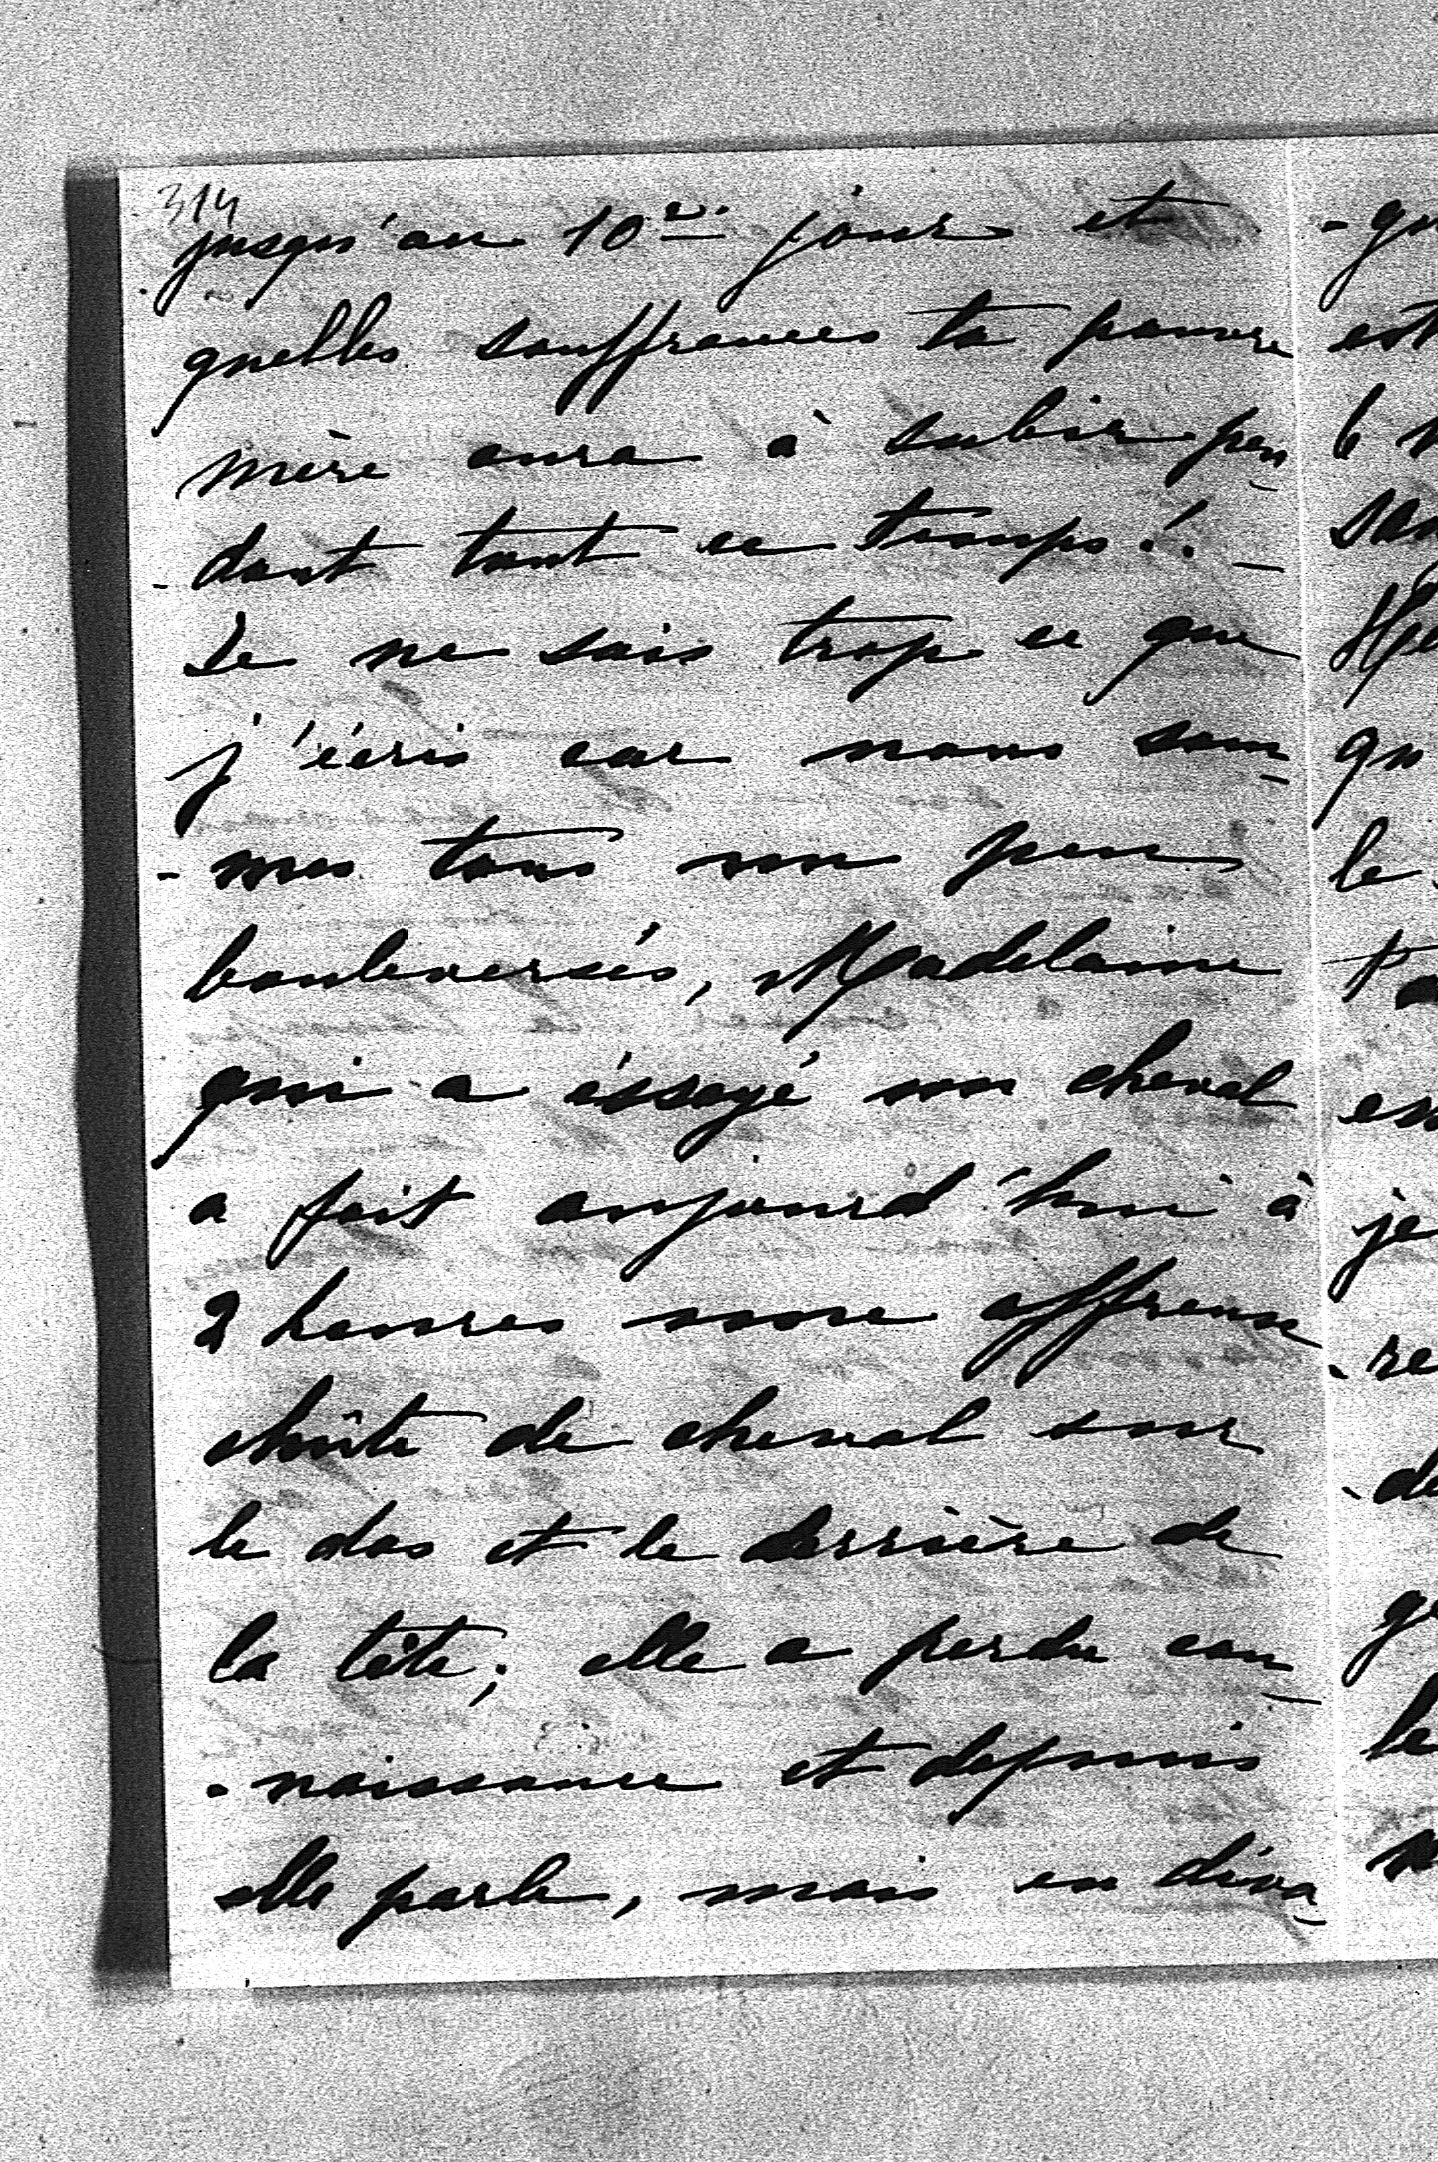 314
jusqu'au 10e jour et
quelles souffrances ta pauvre
mère aura à subir pen
-dant tout ce temps! -
Je ne sais trop ce que
j'écris car nous som-
-mes tous un peu
bouleversés, Madelaine
qui a éssayé son cheval
a fait aujourd'hui à
2 heures une affreuse
chûte de cheval sur
le dos et le derrière de
la tête; elle a perdu con-
-naissance et depuis
elle parle, mais en diva-